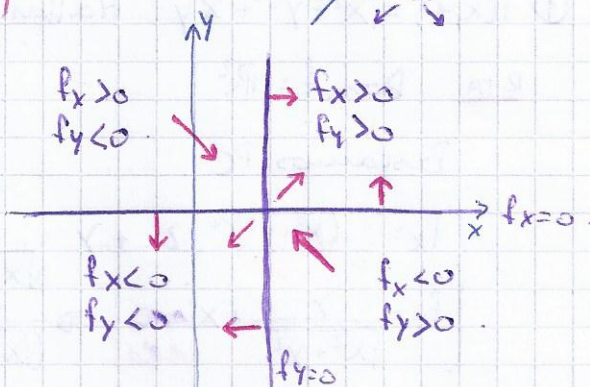 y
fx>0
fy<0
fx>0
fy>0
x
fx=0
fx<0
fy<0
fx<0
fy>0
fy=0